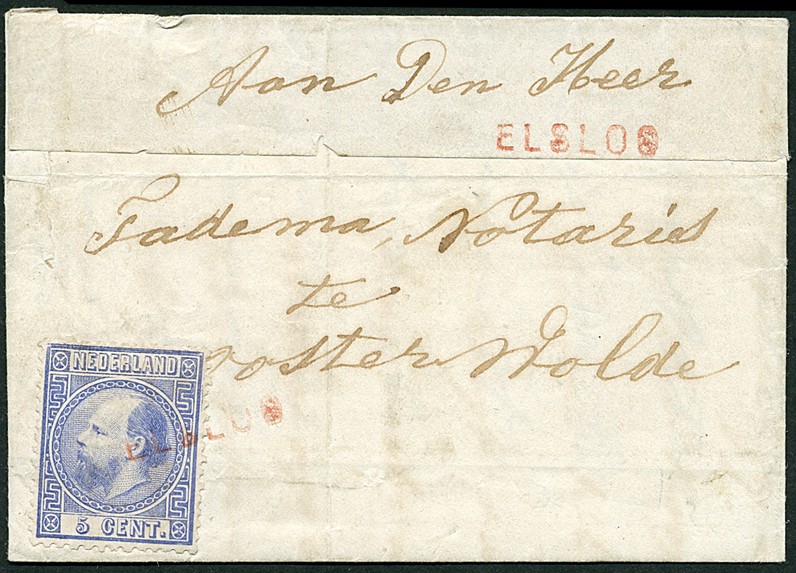 Aan Den Heer
ELSLOO
Tadema, Notaris
te
Ooster Wolde
NEDERLAND
ELSLOO
5 CENT.